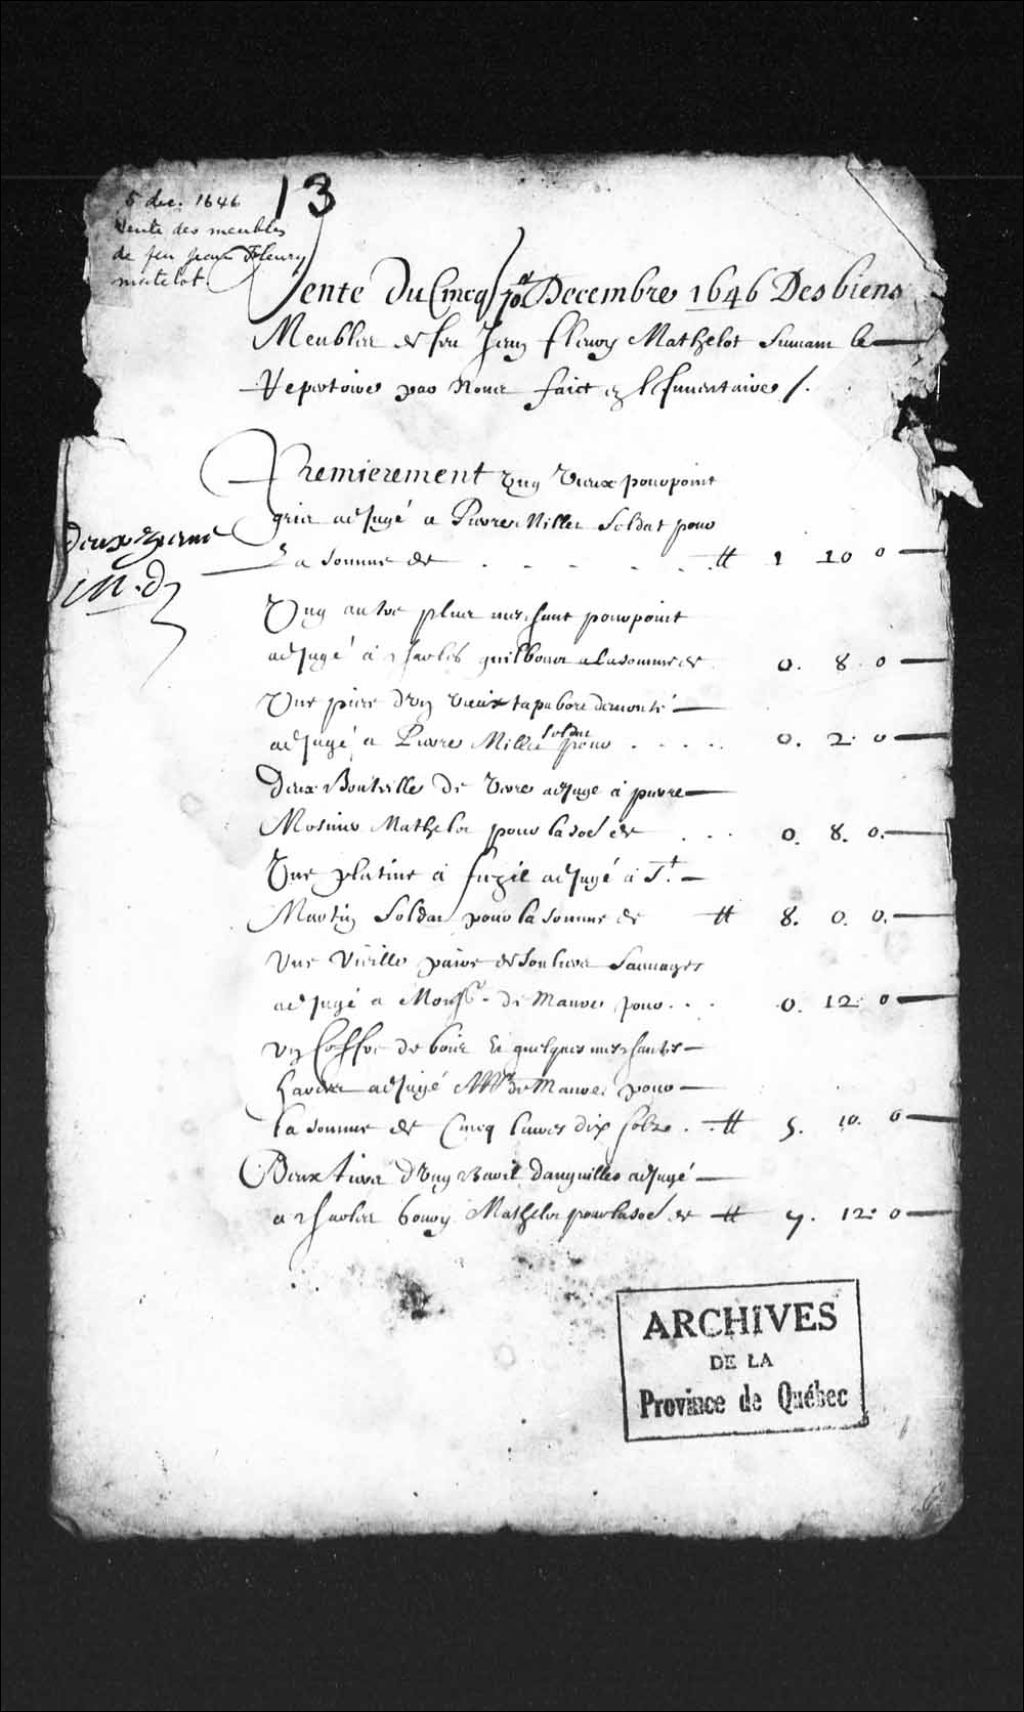 13
5 dec. 1646
Vente des meubles
de feu Jean Fleury
matelot.
Vente Du Cincq Decembre 1646 Des biens
Meubles de feu Jean fleury Mathelot Suivant le
Repertoire par Nous faict en l'Inventaire /.
Premierement Ung Vieux pourpoint
gris adjugé a Pierre Miller Soldat pour
La somme de . . . . . # 1 10 0
Deuxiesme
Ung autre plus meschant pourpoint
adjugé à Charles guilboux a la somme de 0. 8 0
Une piece d'un vieux tapabore demonté
adjugé a Pierre Miller soldat pour . . . . . 0. 2 0
Deux Bouteille de Verre adjugé à pierre
Mathelot pour la so.e de . . . 0. 8. 0.
Une platine a fuzil adjugé à St.
Martin Soldat pour la somme de # 8. 0. 0.
Une Vieille paire de Souliers Sauvages
adjugé a Mons.r de Manve pour . . . 0. 12 0
Un Coffre de bois et quelques meschantes
hardes adjugé A M.r de Manve pour
la somme de Cincq livres dix solz . . # 5. 10. 0
Deux tiers d'Ung Baril d'anguilles adjugé
a Charles Mathelot pour la so.e de # 7. 12 0
ARCHIVES
DE LA
Province de Québec